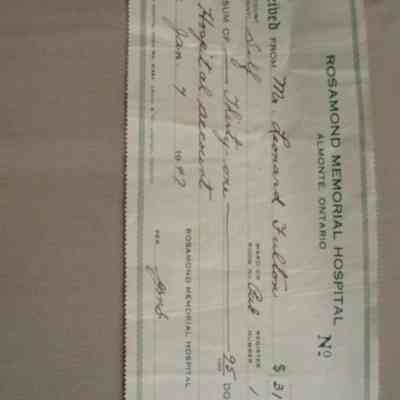 ROSAMOND MEMORIAL HOSPITAL
ALMONTE, ONTARIO
Nº
Received FROM Mr Leonard Fulton $ 31
Self WARD OR ROOM NO. Pub REGISTER NUMBER 1
SUM OF Thirty one 95 DO
Hospital account
ROSAMOND MEMORIAL HOSPITAL
Jan 7 1942
PER